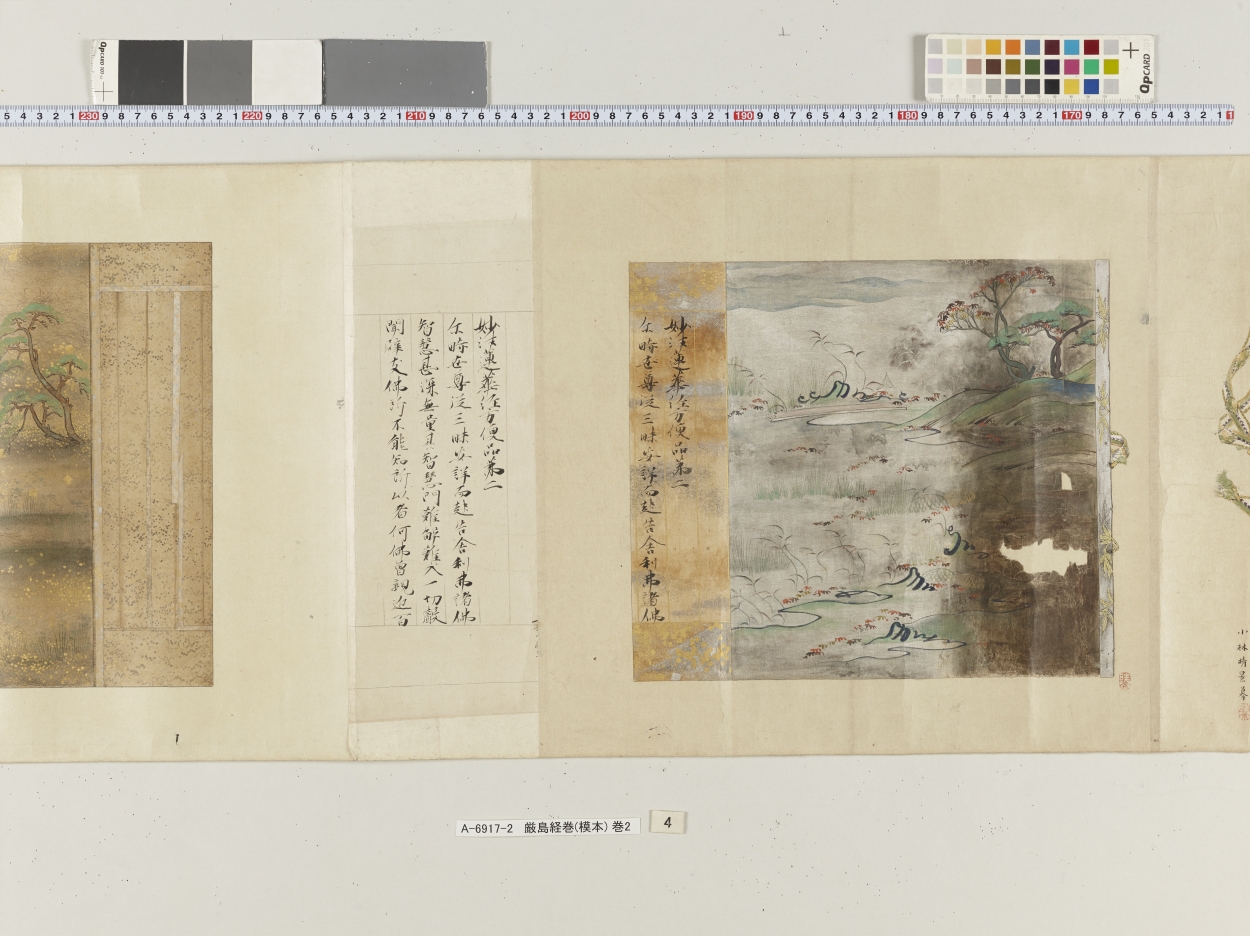 QPCARD 101
QPCARD
5 4 3 2 1 230 9 8 7 6 5 4 3 2 1 220 9 8 7 6 5 4 3 2 1 210 9 8 7 6 5 4 3 2 1 200 9 8 7 6 5 4 3 2 1 190 9 8 7 6 5 4 3 2 1 180 9 8 7 6 5 4 3 2 1 170 9 8 7 6 5 4 3 2 1 1
小林
妙法蓮華経方便品第二
尓時世尊従三昧安詳而起告舎利弗諸佛
妙法蓮華経方便品第二
尓時世尊従三昧安詳而起告舎利弗諸佛
智慧甚深無量其智慧門難解難入一切聲
聞辟支佛所不能知所以者何佛曽親近百
A-6917-2 厳島経巻(模本) 巻2
4